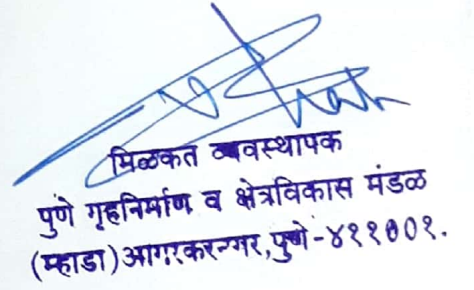 मिळकत व्यवस्थापक
पुणे गृहनिर्माण व क्षेत्रविकास मंडळ
(म्हाडा) आगरकरनगर, पुणे-४११००१.